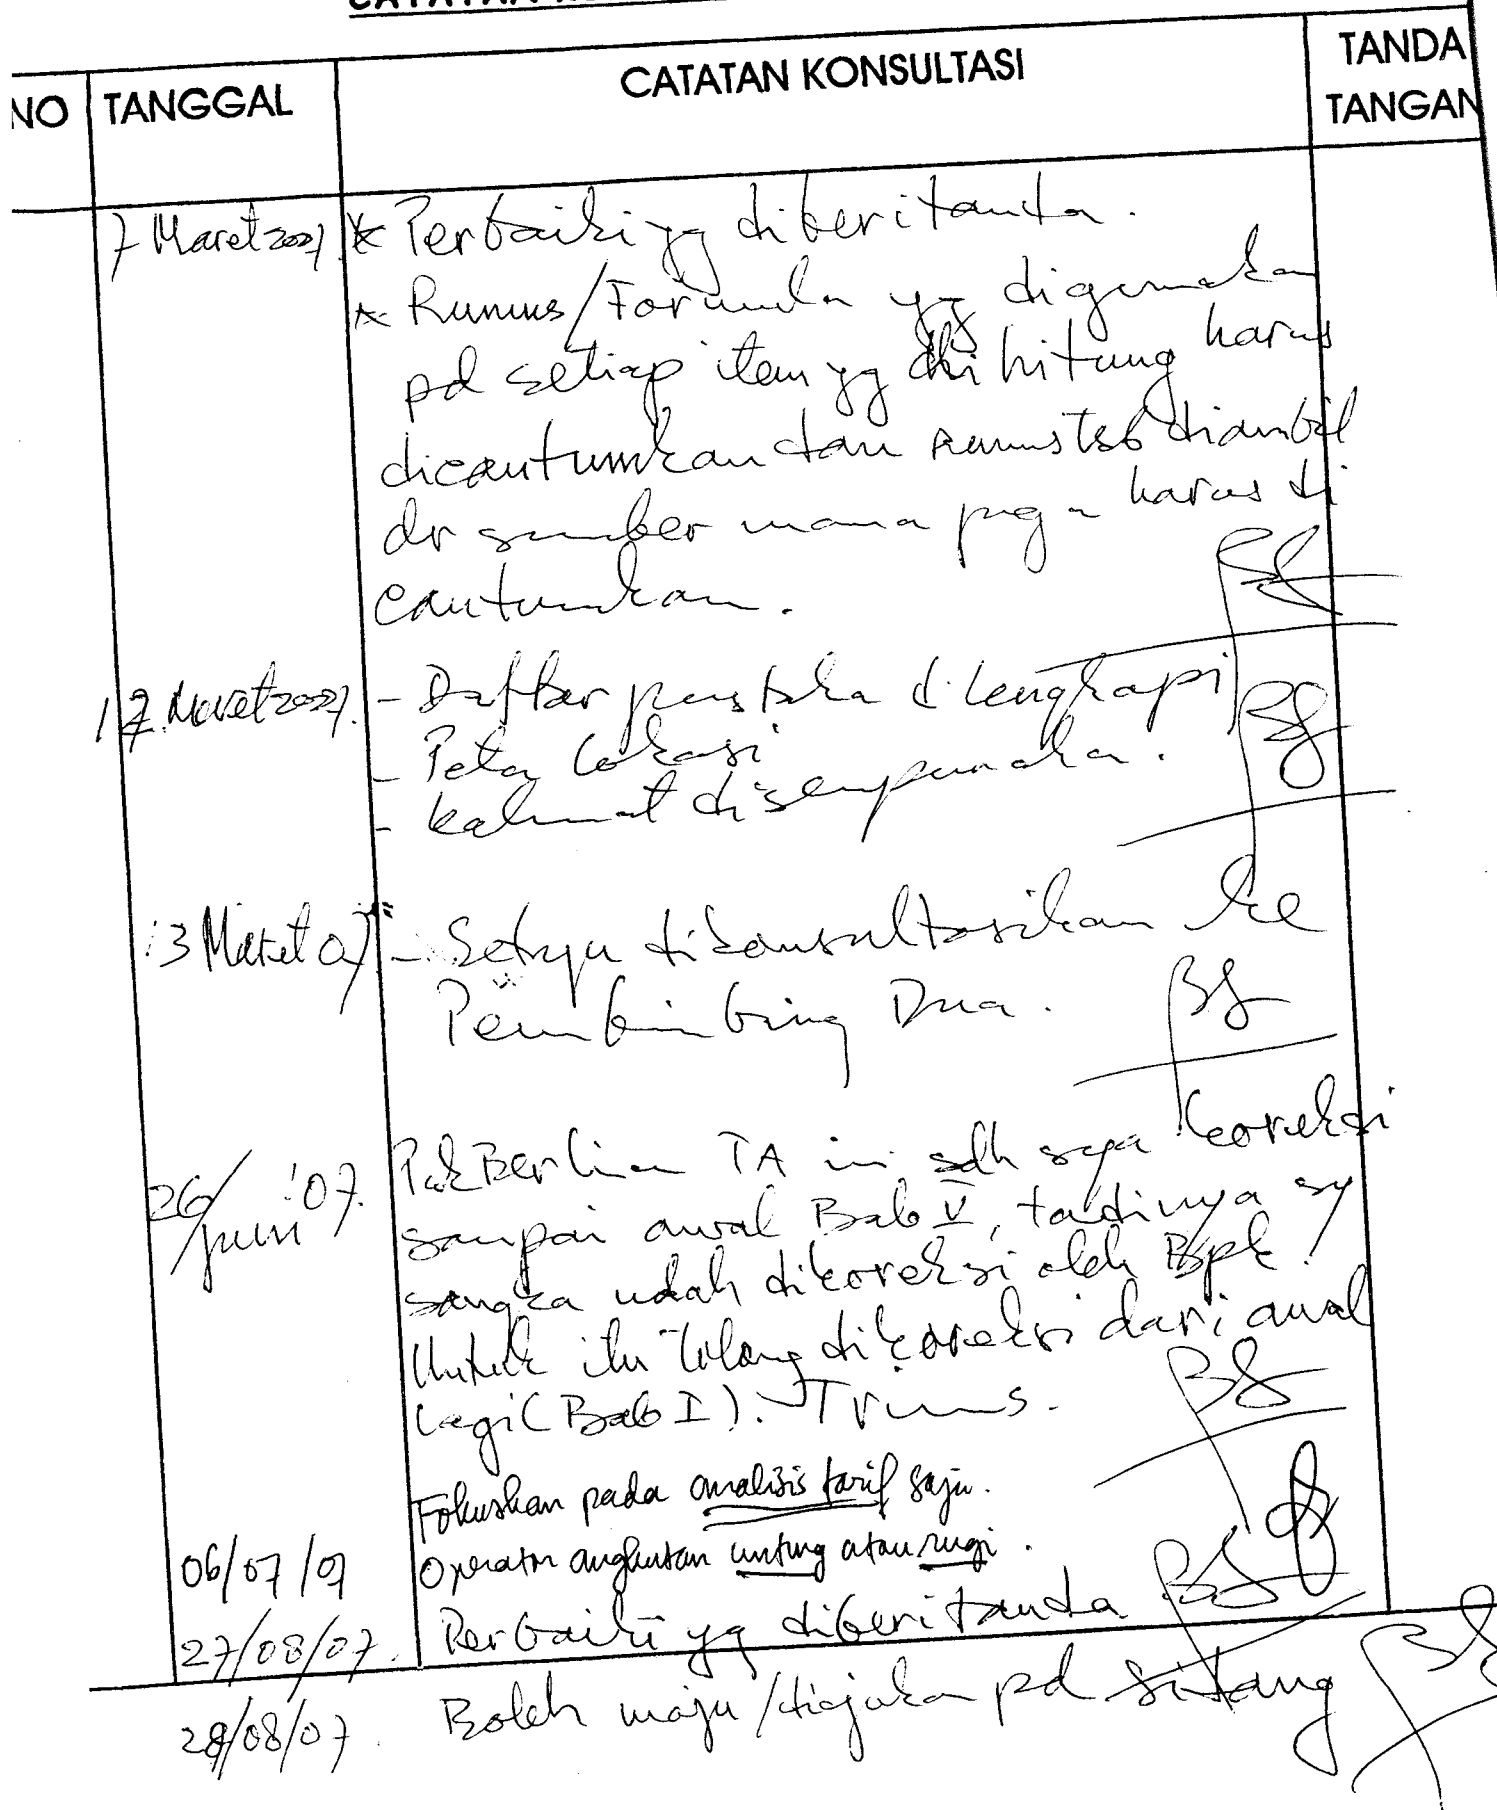 NO TANGGAL CATATAN KONSULTASI TANDA TANGAN
7 Maret 2007 * Perbaiki yg diberi tanda.
* Rumus/Formula yg digunakan
pd setiap item yg dihitung harus
dicantumkan dan rumus tsb diambil
dr sumber mana juga harus di
cantumkan.
12 Maret 2007. - Daftar pustaka dilengkapi
- Peta lokasi
- kalimat disempurnaka.
13 Maret 07 - Setuju dikonsultasikan ke
Pembimbing Dua.
26/Juni '07. Pak Berlian TA ini sdh saya koreksi
sampai awal Bab V, tadinya sy
sangka udah dikoreksi oleh Bpk!
Untuk itu tolong dikoreksi dari awal
lagi (Bab I). Trims.
Fokuskan pada analisis tarif saja.
06/07/07 Operator angkutan untung atau rugi.
27/08/07. Perbaiki yg diberi tanda
28/08/07. Boleh maju/diajuka pd sidang